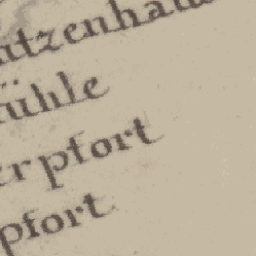 utzenhau
ühle
er pfort
pfort